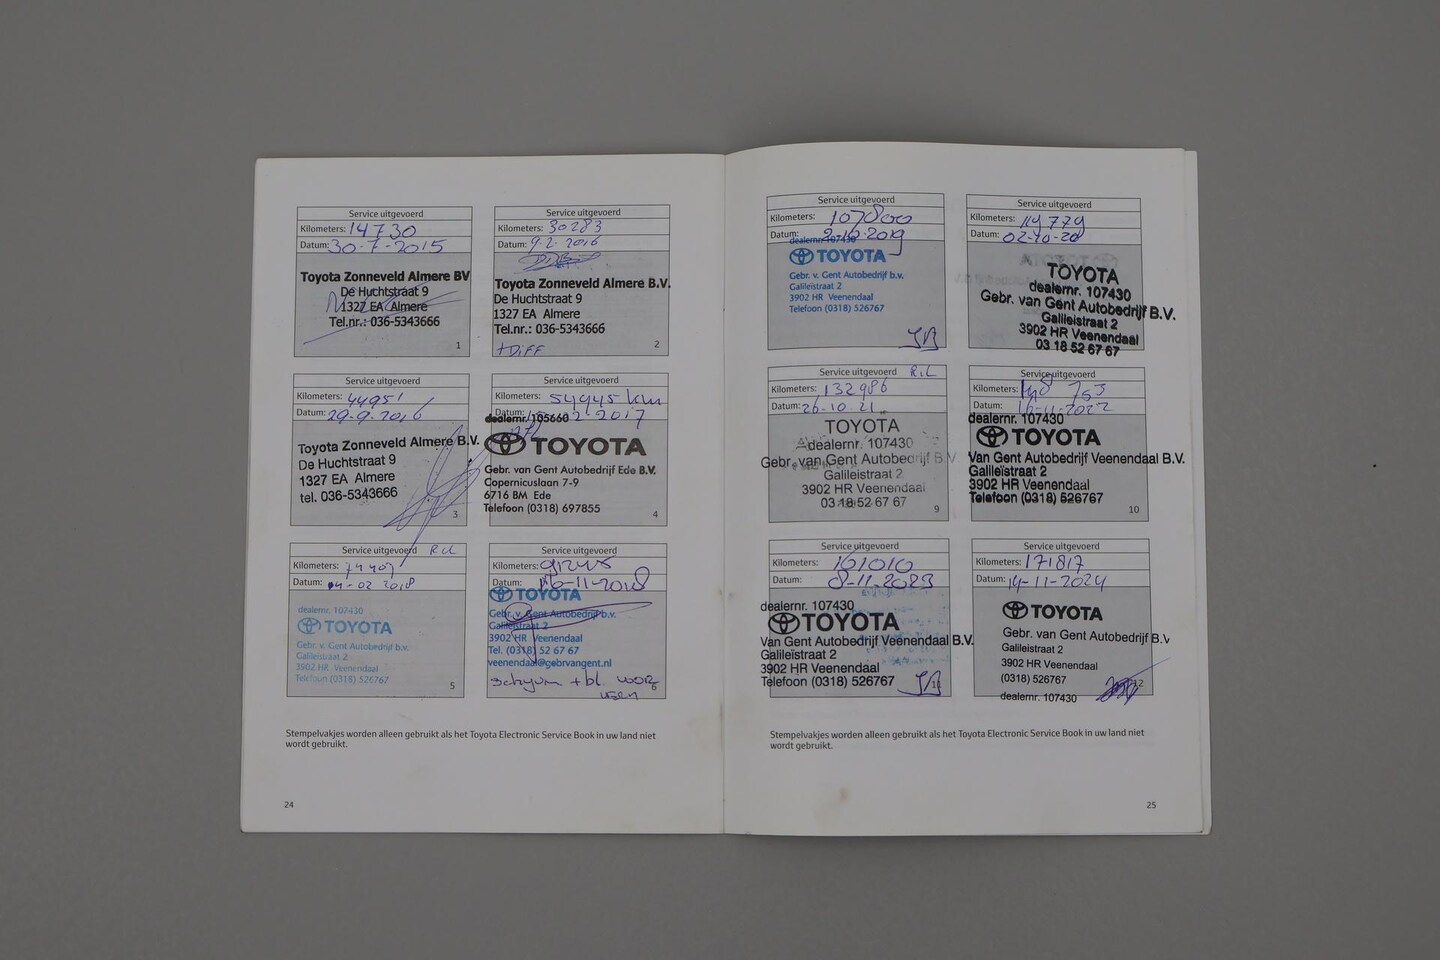 Service uitgevoerd
Kilometers: 14730
Datum: 30-7-2015
Toyota Zonneveld Almere BV
De Huchtstraat 9
1327 EA Almere
Tel.nr.: 036-5343666
1
Service uitgevoerd
Kilometers: 30283
Datum: 9-2-2016
Toyota Zonneveld Almere B.V.
De Huchtstraat 9
1327 EA Almere
Tel.nr.: 036-5343666
+DIFF
2
Service uitgevoerd
Kilometers: 44951
Datum: 29-9-2016
Toyota Zonneveld Almere B.V.
De Huchtstraat 9
1327 EA Almere
tel. 036-5343666
3
Service uitgevoerd
Kilometers: 54945 km
Datum: 2-2017
dealernr. 105660
TOYOTA
Gebr. van Gent Autobedrijf Ede B.V.
Copernicuslaan 7-9
6716 BM Ede
Telefoon (0318) 697855
4
Service uitgevoerd
Kilometers:
Datum: 04-02 2018
dealernr. 107430
TOYOTA
Gebr. v. Gent Autobedrijf b.v.
Galileistraat 2
3902 HR Veenendaal
Telefoon (0318) 526767
5
Service uitgevoerd
Kilometers:
Datum: 16-11-2018
TOYOTA
Gebr. v. Gent Autobedrijf b.v.
Galileistraat 2
3902 HR Veenendaal
Tel. (0318) 52 67 67
veenendaal@gebrvangent.nl
Stempelvakjes worden alleen gebruikt als het Toyota Electronic Service Book in uw land niet
wordt gebruikt.
24
Service uitgevoerd
Kilometers: 107800
Datum: 2-10-2019
dealernr. 107430
TOYOTA
Gebr. v. Gent Autobedrijf b.v.
Galileistraat 2
3902 HR Veenendaal
Telefoon (0318) 526767
Service uitgevoerd
Kilometers: 119729
Datum: 02-10-20
TOYOTA
dealernr. 107430
Gebr. van Gent Autobedrijf B.V.
Galileistraat 2
3902 HR Veenendaal
03 18 52 67 67
Service uitgevoerd
Kilometers: 132986
Datum: 26-10-21
TOYOTA
dealernr. 107430
Gebr. van Gent Autobedrijf B.V.
Galileistraat 2
3902 HR Veenendaal
03 18 52 67 67
9
Service uitgevoerd
Kilometers:
Datum: 16-11-2022
dealernr. 107430
TOYOTA
Van Gent Autobedrijf Veenendaal B.V.
Galileïstraat 2
3902 HR Veenendaal
Telefoon (0318) 526767
10
Service uitgevoerd
Kilometers: 161010
Datum: 8-11-2023
dealernr. 107430
TOYOTA
Van Gent Autobedrijf Veenendaal B.V.
Galileïstraat 2
3902 HR Veenendaal
Telefoon (0318) 526767
11
Service uitgevoerd
Kilometers: 171817
Datum: 14-11-2024
TOYOTA
Gebr. van Gent Autobedrijf B.V.
Galileistraat 2
3902 HR Veenendaal
(0318) 526767
dealernr. 107430
12
Stempelvakjes worden alleen gebruikt als het Toyota Electronic Service Book in uw land niet
wordt gebruikt.
25